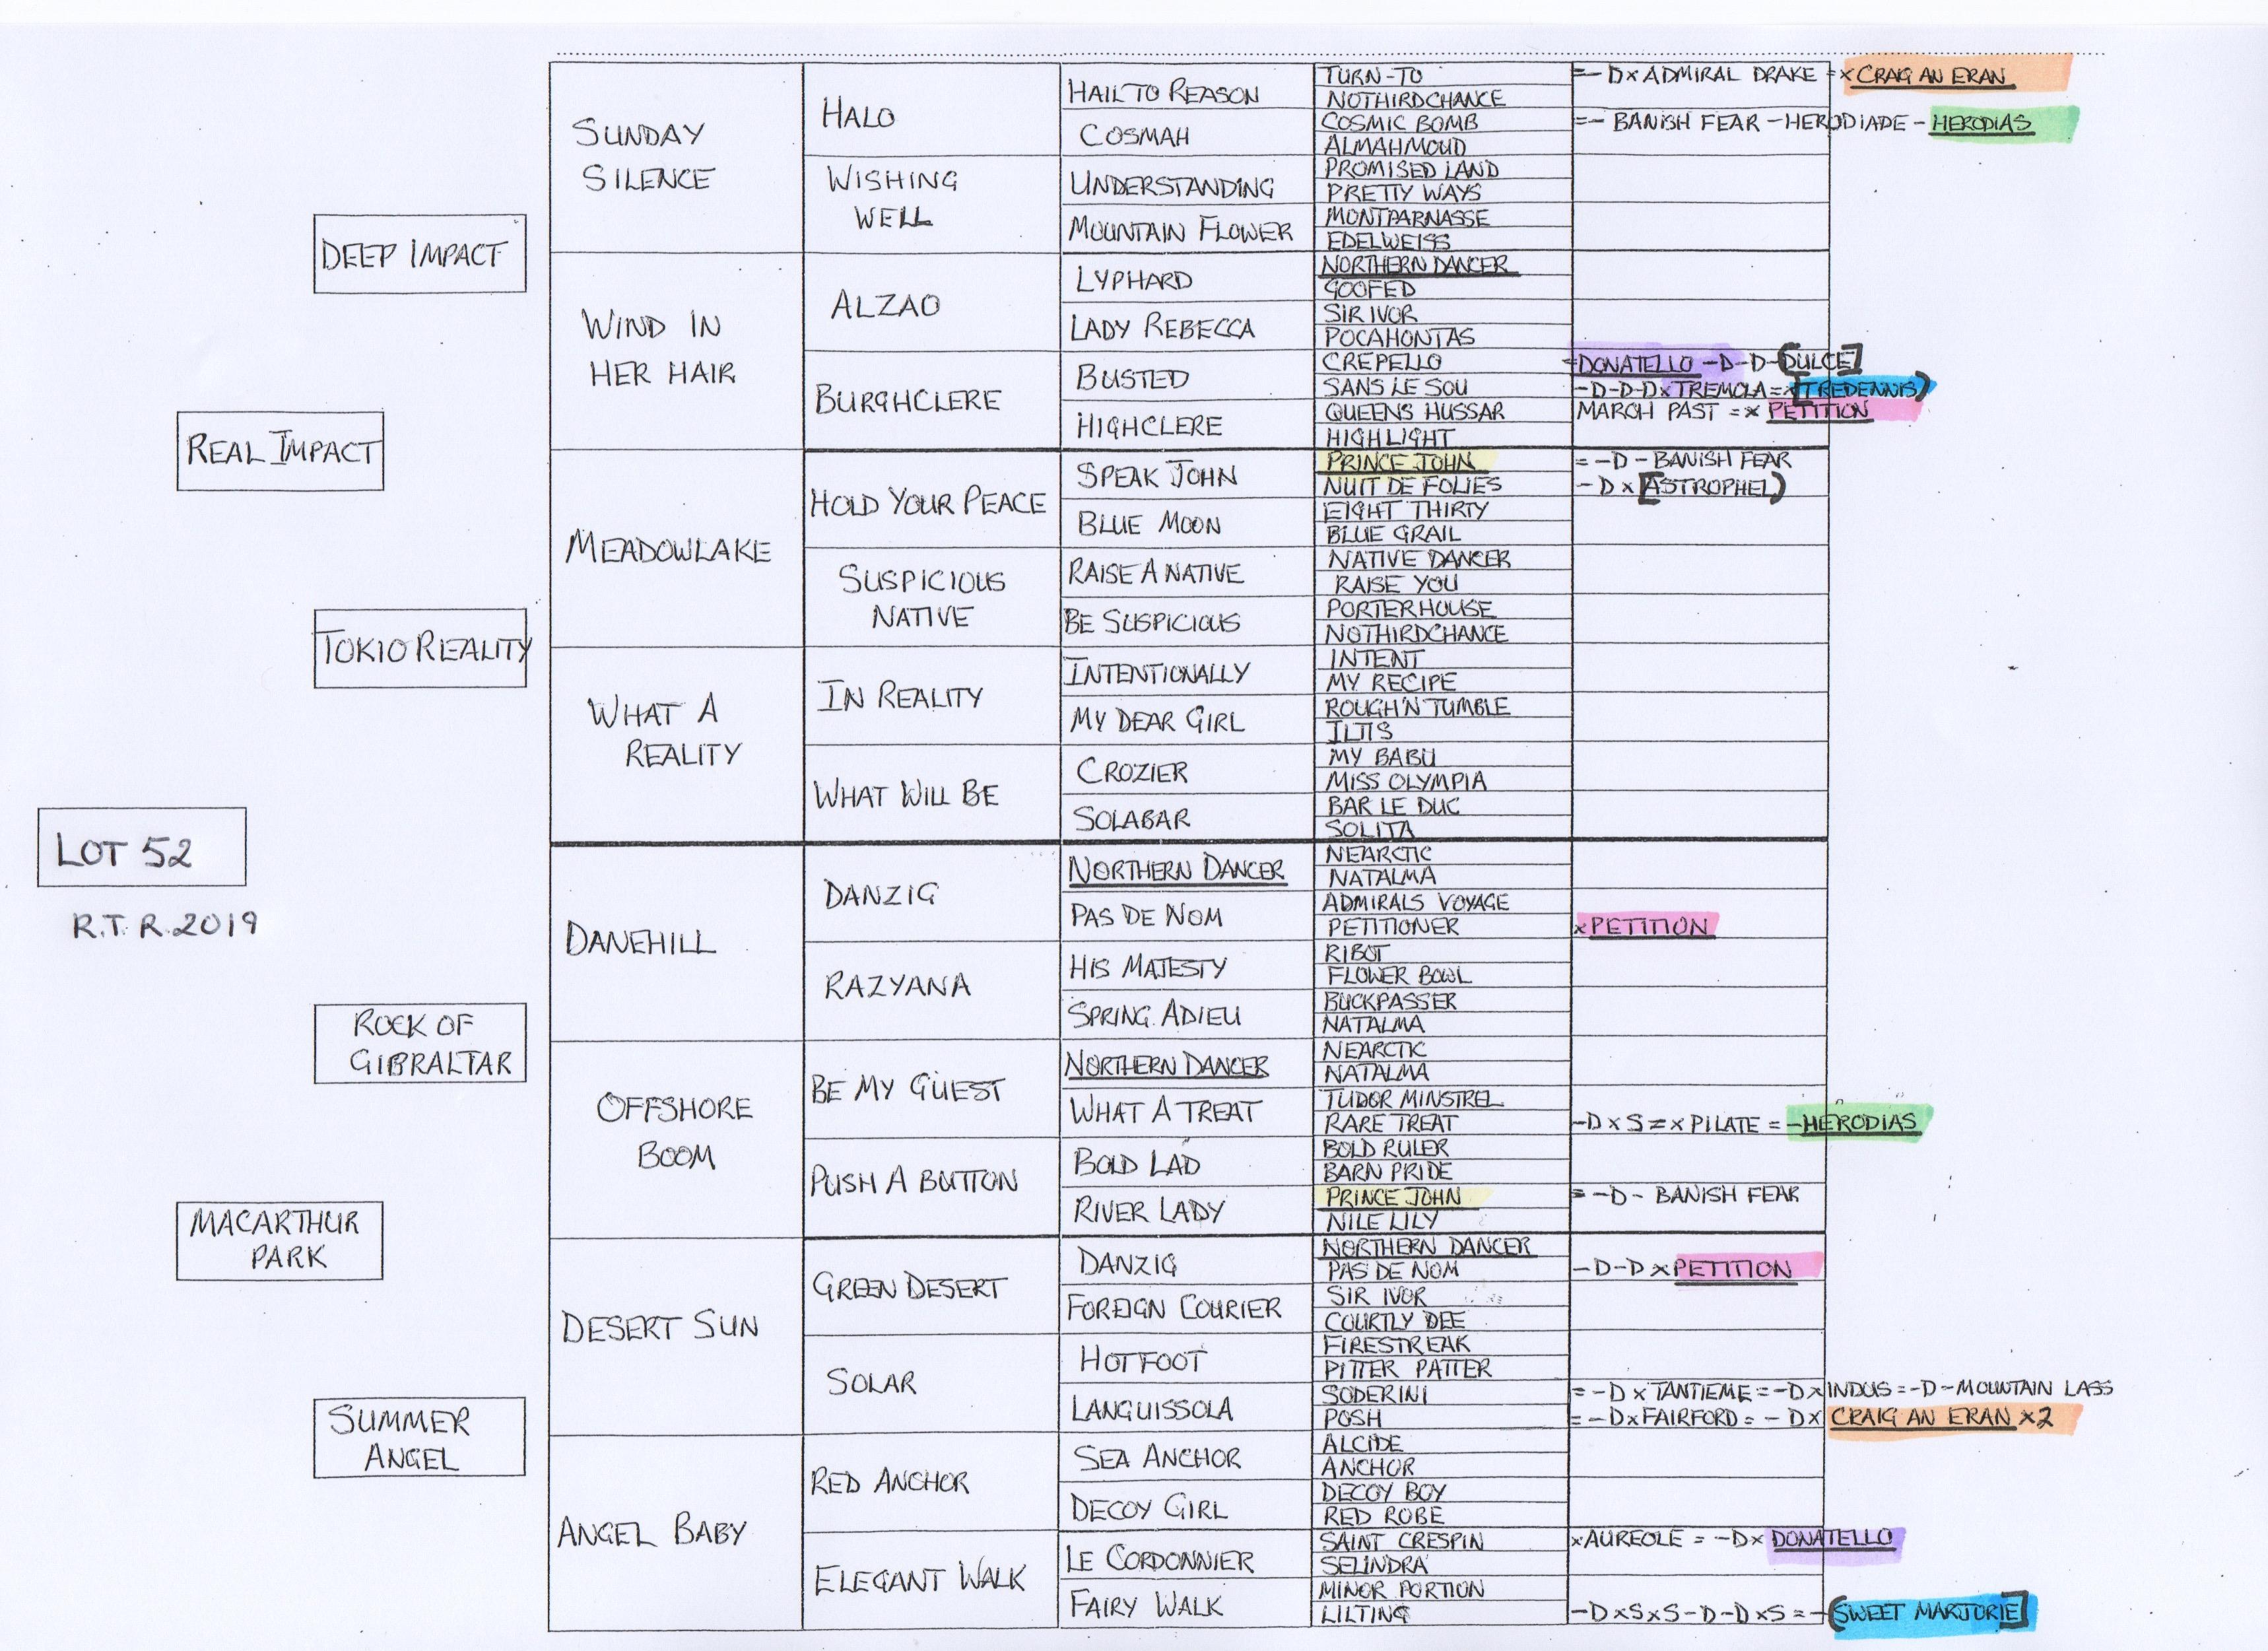 TURN-TO =- D× ADMIRAL DRAKE =× CRAIG AN ERAN
HAIL TO REASON
NOTHIRDCHANCE
HALO
COSMIC BOMB =- BANISH FEAR - HERODIADE - HERODIAS
SUNDAY
SILENCE
COSMAH
ALMAHMOUD
PROMISED LAND
WISHING
WELL
UNDERSTANDING
PRETTY WAYS
MONTPARNASSE
MOUNTAIN FLOWER
EDELWEISS
DEEP IMPACT
NORTHERN DANCER
LYPHARD
GOOFED
ALZAO
SIR IVOR
WIND IN
HER HAIR
LADY REBECCA
POCAHONTAS
CREPELLO =DONATELLO -D-D-[DULCE]
BUSTED
SANS LE SOU -D-D-D×TREMOLA=×[TREDENNIS)
BURGHCLERE
QUEENS HUSSAR MARCH PAST =× PETITION
HIGHCLERE
HIGHLIGHT
REAL IMPACT
PRINCE JOHN = -D - BANISH FEAR
SPEAK JOHN
NUIT DE FOLIES - D × [ASTROPHEL)
HOLD YOUR PEACE
EIGHT THIRTY
BLUE MOON
BLUE GRAIL
MEADOWLAKE
NATIVE DANCER
RAISE A NATIVE
RAISE YOU
SUSPICIOUS
NATIVE
PORTERHOUSE
BE SUSPICIOUS
NOTHIRDCHANCE
TOKIO REALITY
INTENT
INTENTIONALLY
MY RECIPE
IN REALITY
ROUGH'N TUMBLE
WHAT A
REALITY
MY DEAR GIRL
ILTIS
MY BABU
CROZIER
MISS OLYMPIA
WHAT WILL BE
BAR LE DUC
SOLABAR
SOLITA
LOT 52
R.T.R.2019
NEARCTIC
NORTHERN DANCER
NATALMA
DANZIG
ADMIRALS VOYAGE
PAS DE NOM
PETITIONER ×PETITION
DANEHILL
RIBOT
HIS MAJESTY
FLOWER BOWL
RAZYANA
BUCKPASSER
SPRING ADIEU
NATALMA
ROCK OF
GIBRALTAR
NEARCTIC
NORTHERN DANCER
NATALMA
BE MY GUEST
TUDOR MINSTREL
WHAT A TREAT
RARE TREAT -D×S=×PILATE =-HERODIAS
OFFSHORE
BOOM
BOLD RULER
BOLD LAD
BARN PRIDE
PUSH A BUTTON
PRINCE JOHN = -D- BANISH FEAR
RIVER LADY
NILE LILY
MACARTHUR
PARK
NORTHERN DANCER
DANZIG
PAS DE NOM -D-D×PETITION
GREEN DESERT
SIR IVOR
FOREIGN COURIER
COURTLY DEE
DESERT SUN
FIRESTREAK
HOTFOOT
PITTER PATTER
SOLAR
SODERINI = -D×TANTIEME=-D×INDUS=-D-MOUNTAIN LASS
LANGUISSOLA
POSH =-D×FAIRFORD= - D× CRAIG AN ERAN ×2
SUMMER
ANGEL
ALCIDE
SEA ANCHOR
ANCHOR
RED ANCHOR
DECOY BOY
DECOY GIRL
RED ROBE
ANGEL BABY
SAINT CRESPIN ×AUREOLE = -D× DONATELLO
LE CORDONNIER
SELINDRA
ELEGANT WALK
MINOR PORTION
FAIRY WALK
LILTING -D×S×S-D-D×S=-(SWEET MARJORIE]